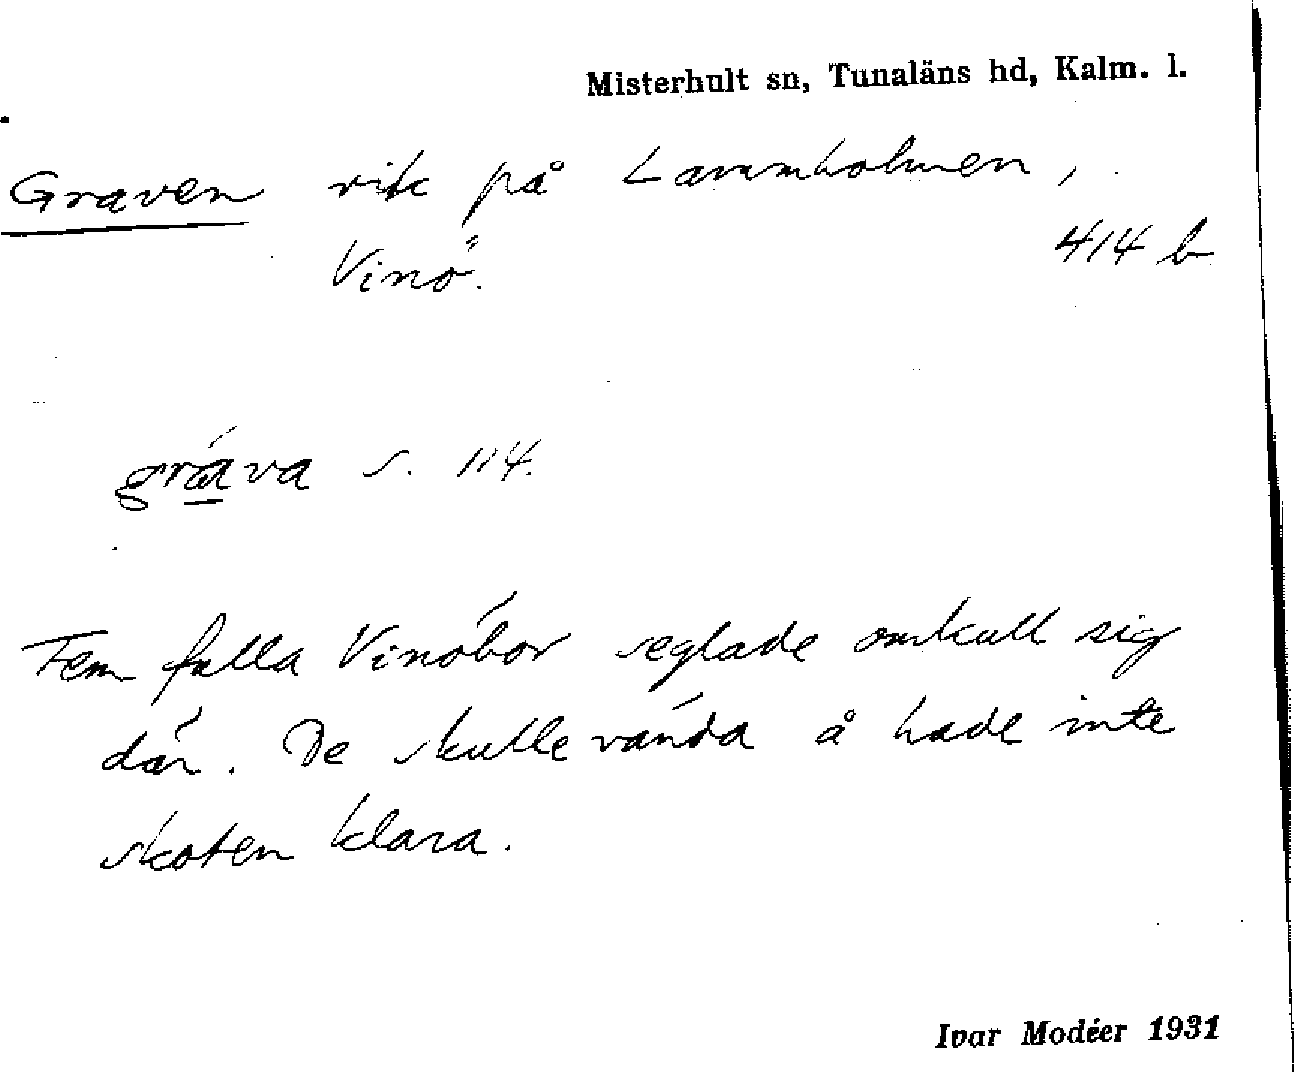 Misterhult sn, Tunaläns hd, Kalm. l.
Graven vik på Lammholmen,
Vinö.
414 b
gráva s. 114.
Fem fulla Vinöbor seglade omkull sig
där. De skulle vända å hade inte
skoten klara.
Ivar Modéer 1931